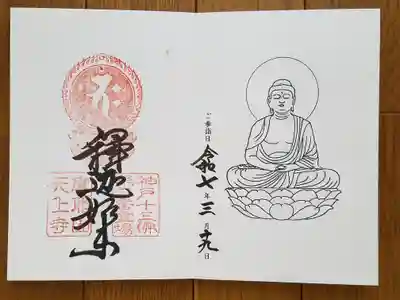 令和七年三月十九日
神戸十三佛
釋迦如来
摩耶山
天上寺